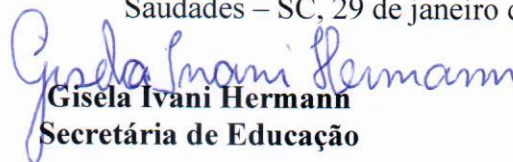 Saudades – SC, 29 de janeiro d
Gisela Ivani Hermann
Gisela Ivani Hermann
Secretária de Educação